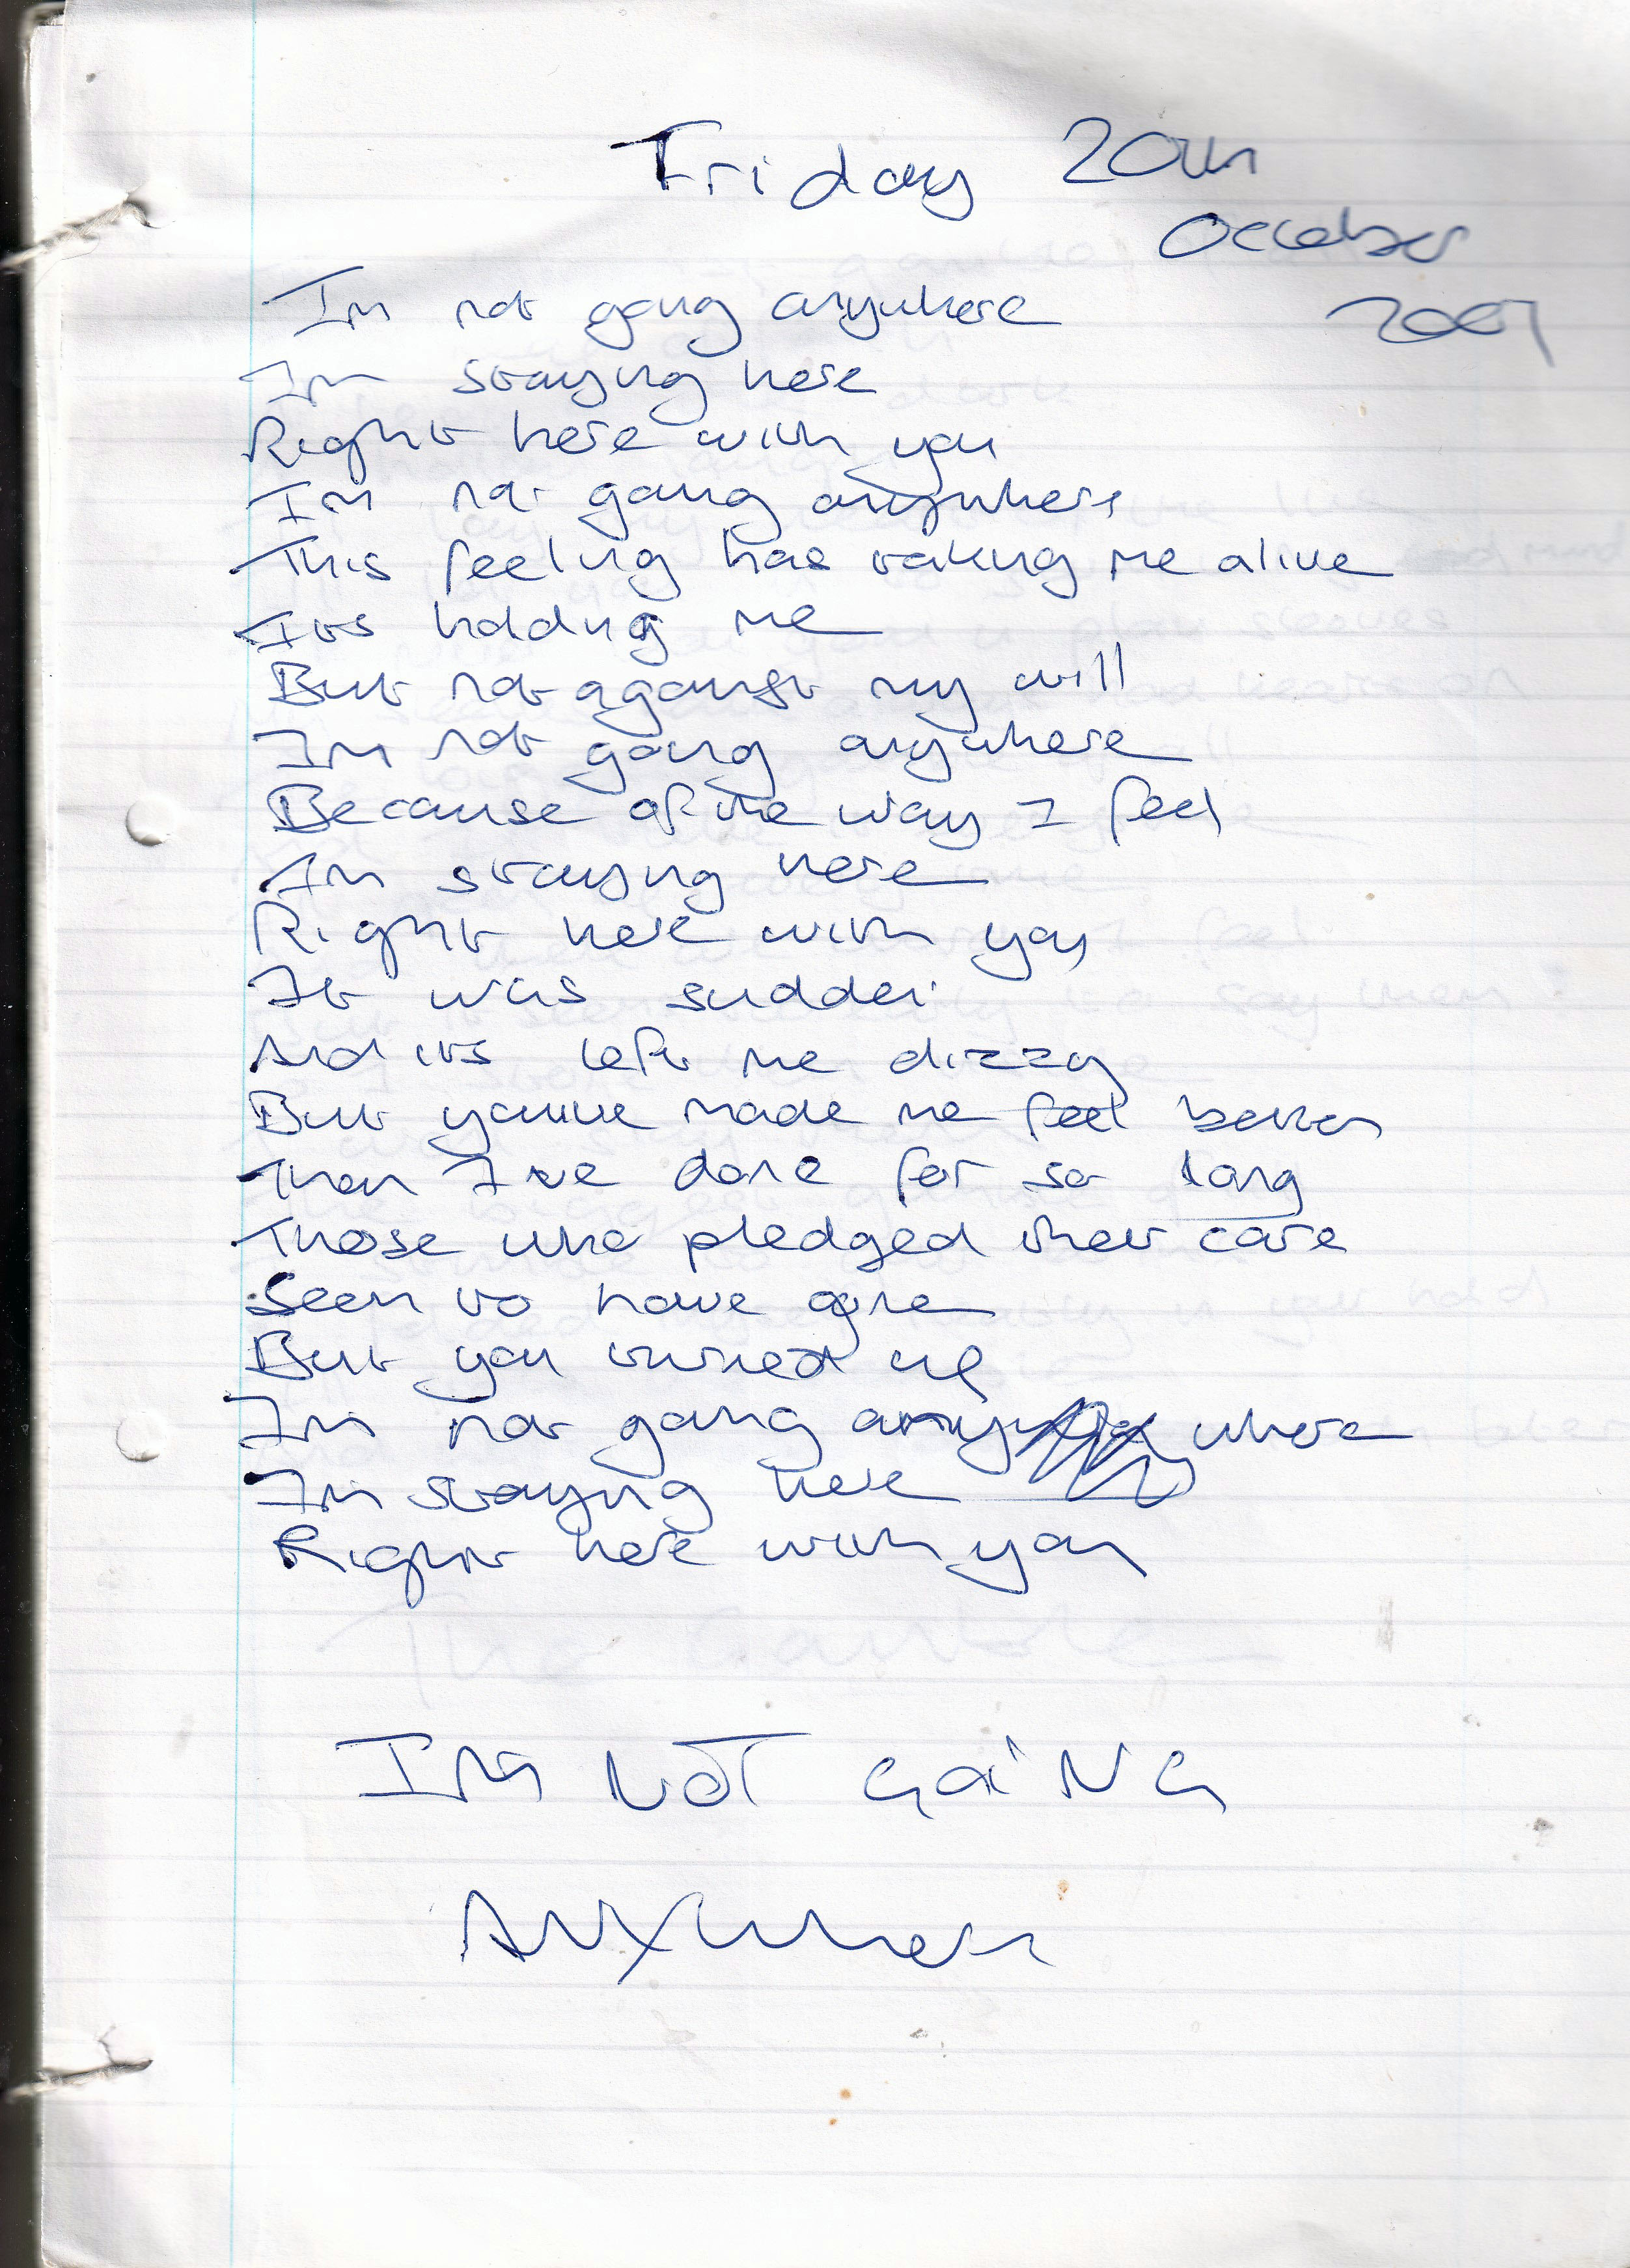 Friday 20th
October
2001
Im not going anywhere
Im staying here
Right here with you
Im not going anywhere
This feeling has taking me alive
Its holding me
But not against my will
Im not going anywhere
Because of the way I feel
Im staying here
Right here with you
It was sudden
And its left me dizzy
But youve made me feel better
Than Ive done for so long
Those who pledged their care
Seem to have gone
But you turned up
Im not going any where
Im staying here
Right here with you
IM NOT GOiNG
ANYwhere